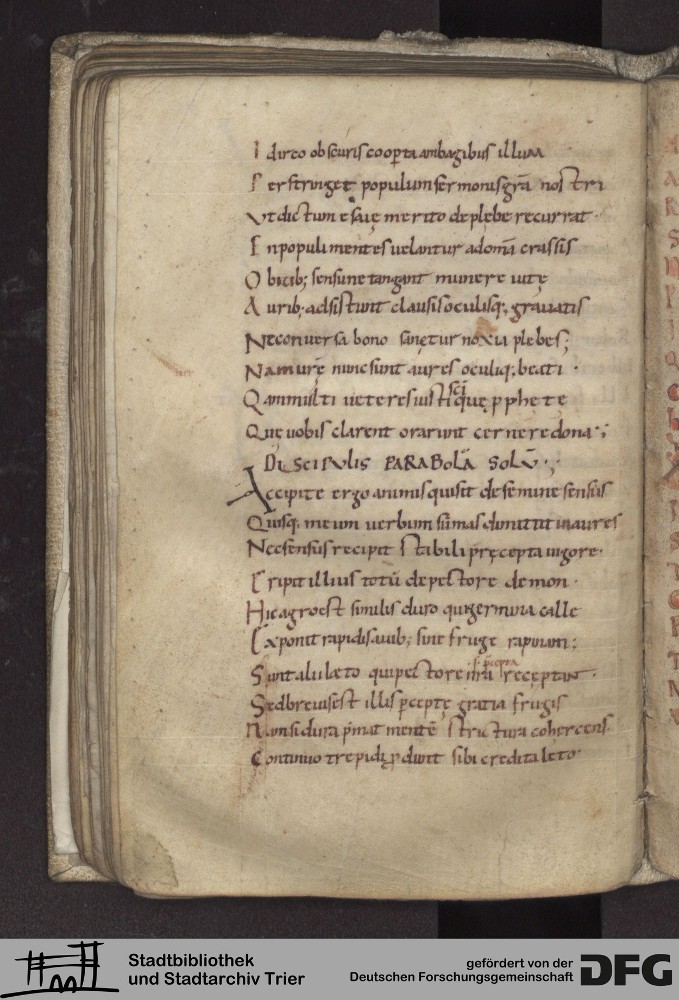 I dirco obscuris cooꝑta ambagibus illum
P erstringet populum sermonis gr̄a nostri
Vt dictum esaię merito de plebe recurrat.
I n populi mentes uelantur adomā crassis
O bicib; sensu ne tangant munere uitę
A urib; adsistunt clausis oculisq; grauatis
Ne conuersa bono sanętur noxii plebes;
Nam urę̄ nunc sunt aures oculiq; beati.
Qam multi ueteres iusti sc̄iquę pphete
Quę uobis clarent orarunt cernere dona.;
DISCIPVLIS PARABOLĀ SOLŪ.;
Accipite ergo animis quis sit de semine sensus
Quisq. meum uerbum sūmas dimittit in aures
Nec sensus recipit stabili pręcepta uigore.
E ripit illius totū de pectore demon.
Hic agro est similis duro qui germina calle
E xponit rapidis auib; sine fruge rapinam:
Sunt alii lęto qui pectore nr̄a receptant.
Sed breuis est illis ꝑceptę gratia frugis
Nam si dura p̄mat mentē strictura cohercens.
Continuo trepidę produnt sibi credita leto.
Stadtbibliothek
und Stadtarchiv Trier
gefördert von der
Deutschen Forschungsgemeinschaft
DFG